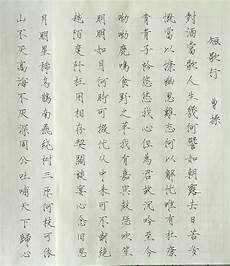 短歌行 曹操
對酒當歌人生幾何譬如朝露去日苦多
慨當以慷幽思難忘何以解憂唯有杜康
青青子衿悠悠我心但為君故沈吟至今
呦呦鹿鳴食野之苹我有嘉賓鼓瑟吹笙
明明如月何時可掇憂從中來不可斷絕
越陌度阡枉用相存契闊談讌心念舊恩
月明星稀烏鵲南飛繞樹三匝何枝可依
山不厭高海不厭深周公吐哺天下歸心